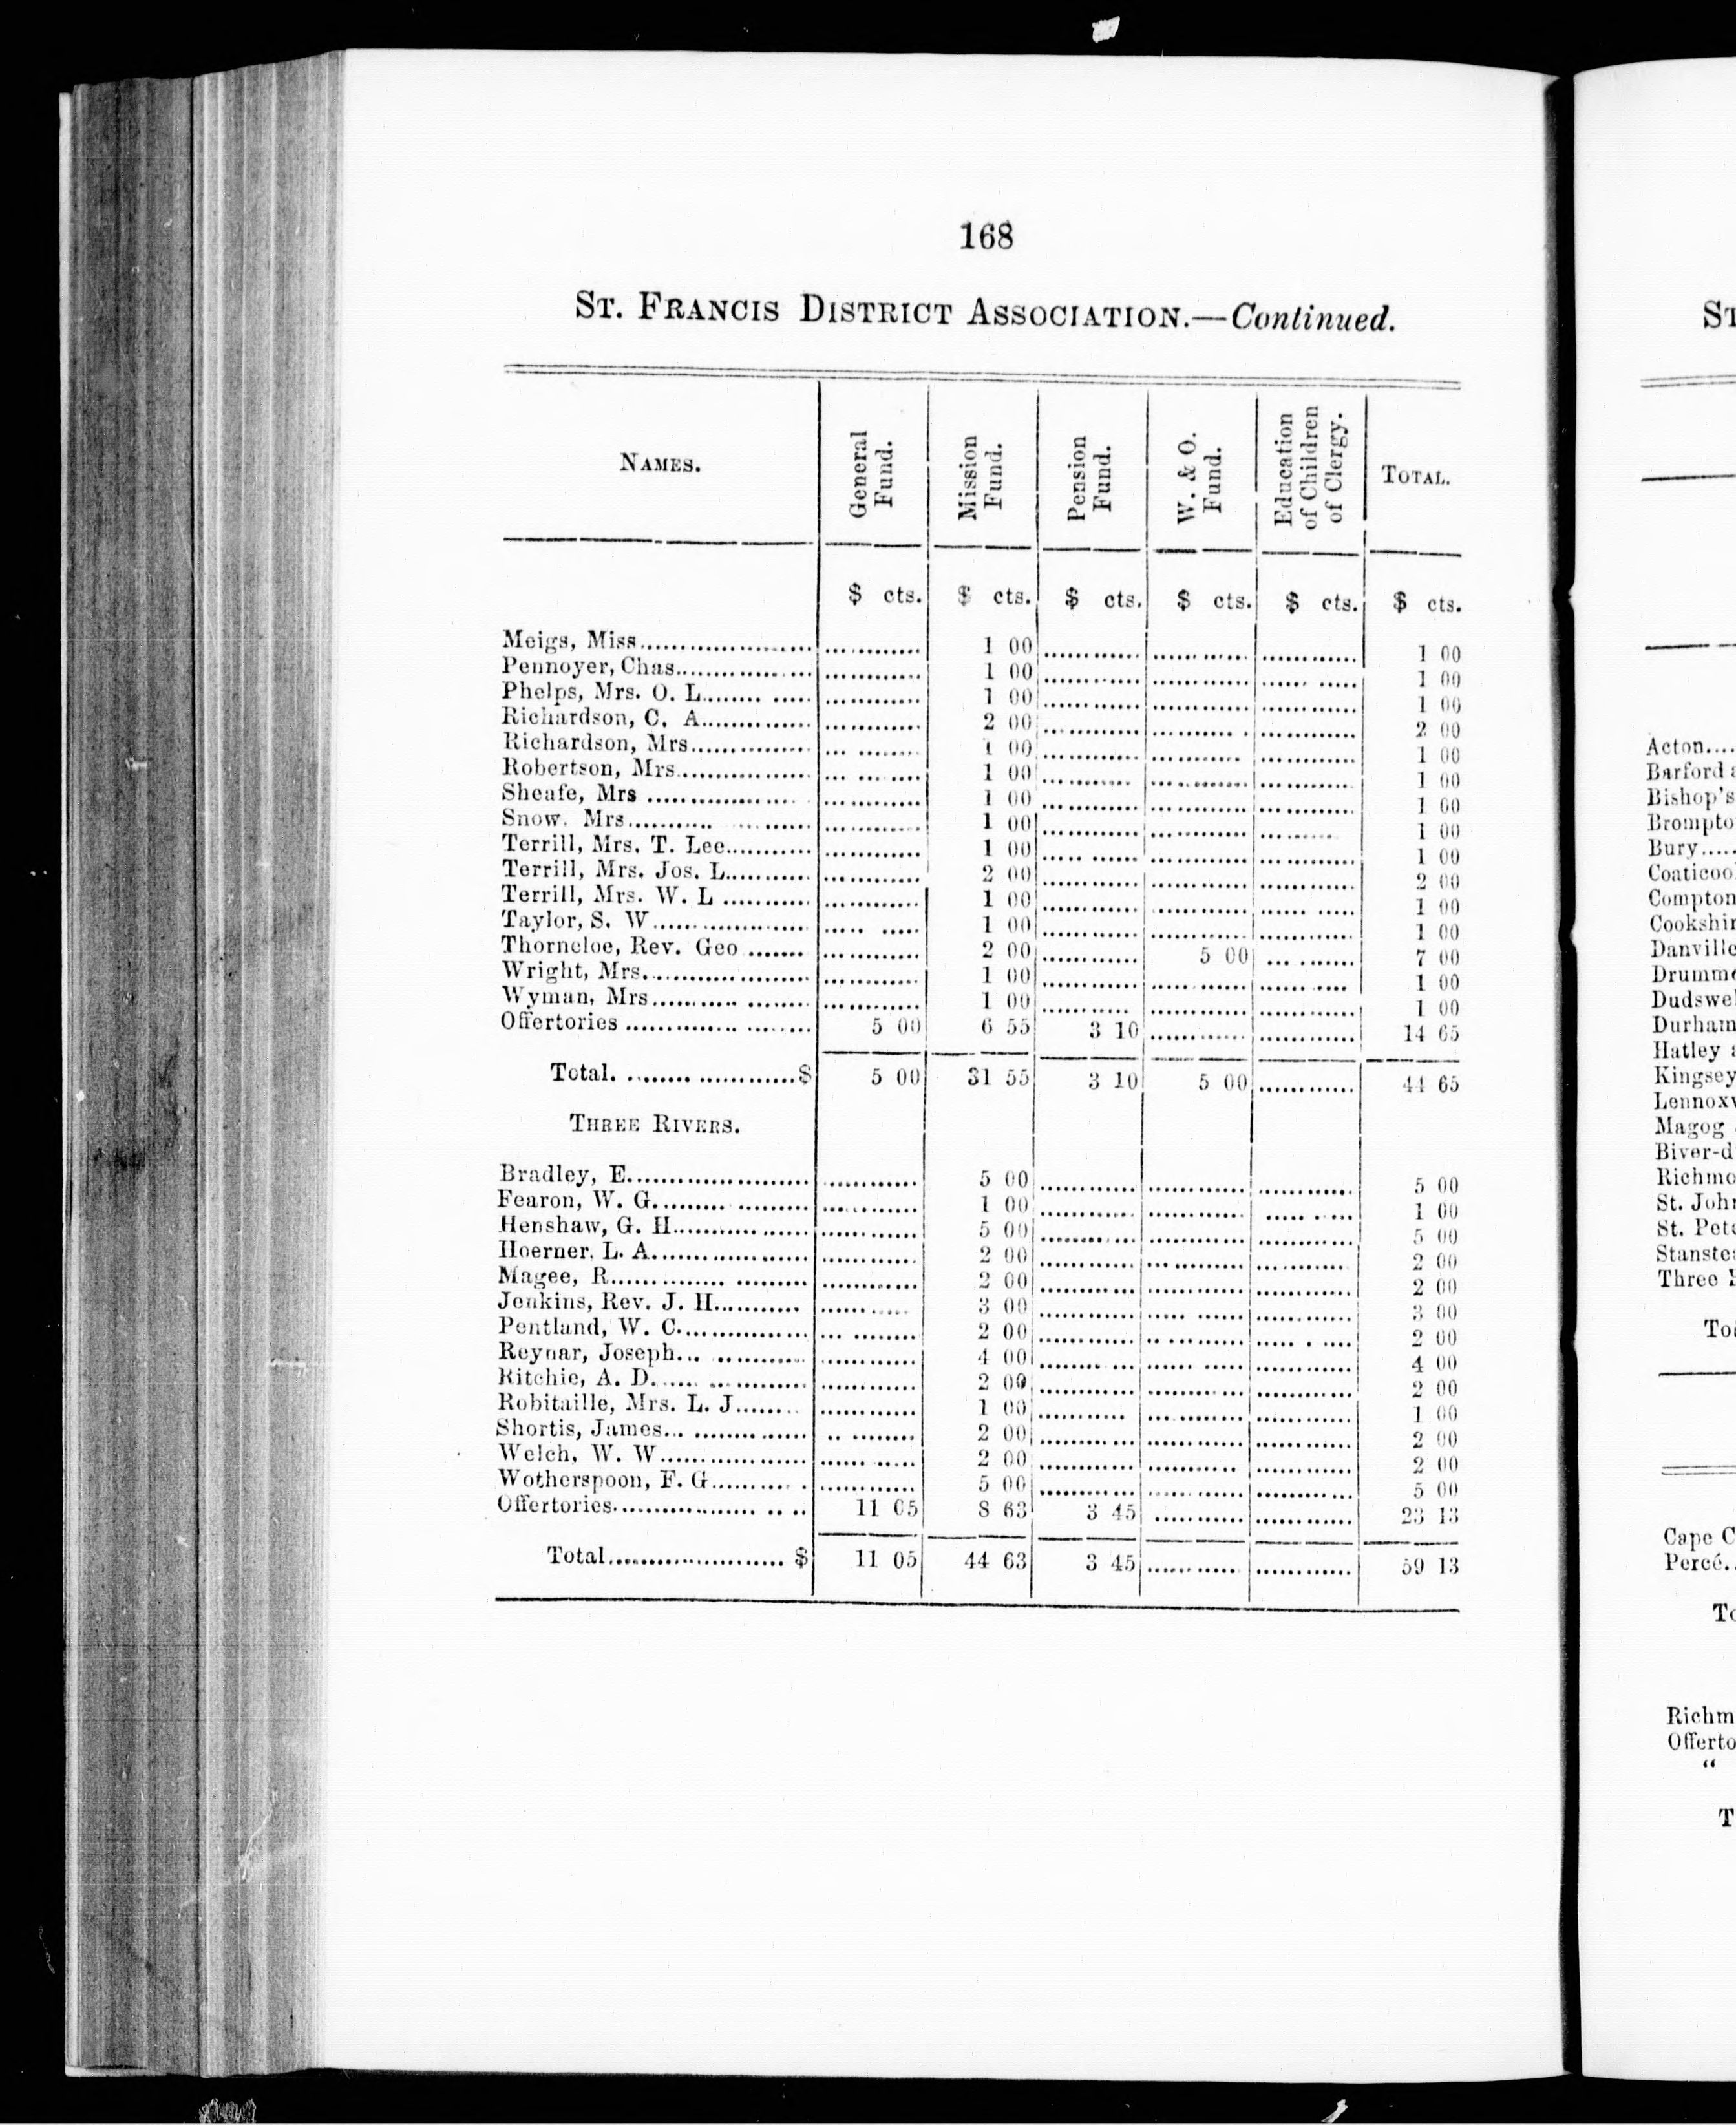 168
ST. FRANCIS DISTRICT ASSOCIATION.—Continued.
NAMES. General Fund. Mission Fund. Pension Fund. W. & O. Fund. Education of Children of Clergy. TOTAL.
$ cts. $ cts. $ cts. $ cts. $ cts. $ cts.
Meigs, Miss 1 00 1 00
Pennoyer, Chas 1 00 1 00
Phelps, Mrs. O. L 1 00 1 00
Richardson, C. A 2 00 2 00
Richardson, Mrs 1 00 1 00
Robertson, Mrs 1 00 1 00
Sheafe, Mrs 1 00 1 00
Snow. Mrs 1 00 1 00
Terrill, Mrs. T. Lee 1 00 1 00
Terrill, Mrs. Jos. L 2 00 2 00
Terrill, Mrs. W. L 1 00 1 00
Taylor, S. W 1 00 1 00
Thorneloe, Rev. Geo 2 00 5 00 7 00
Wright, Mrs. 1 00 1 00
Wyman, Mrs 1 00 1 00
Offertories 5 00 6 55 3 10 14 65
Total. $ 5 00 31 55 3 10 5 00 44 65
THREE RIVERS.
Bradley, E. 5 00 5 00
Fearon, W. G. 1 00 1 00
Henshaw, G. H. 5 00 5 00
Hoerner, L. A. 2 00 2 00
Magee, R. 2 00 2 00
Jenkins, Rev. J. H. 3 00 3 00
Pentland, W. C. 2 00 2 00
Reynar, Joseph 4 00 4 00
Ritchie, A. D. 2 00 2 00
Robitaille, Mrs. L. J 1 00 1 00
Shortis, James 2 00 2 00
Welch, W. W 2 00 2 00
Wotherspoon, F. G 5 00 5 00
Offertories 11 05 8 63 3 45 23 13
Total $ 11 05 44 63 3 45 59 13
ST
Acton
Barford
Bishop's
Brompto
Bury
Coaticoo
Compton
Cookshir
Danville
Drumme
Dudswe
Durham
Hatley
Kingsey
Lennoxv
Magog
Biver-d
Richmo
St. John
St. Pete
Stanste
Three
To
Cape C
Percé.
To
Richm
Offerto
"
T